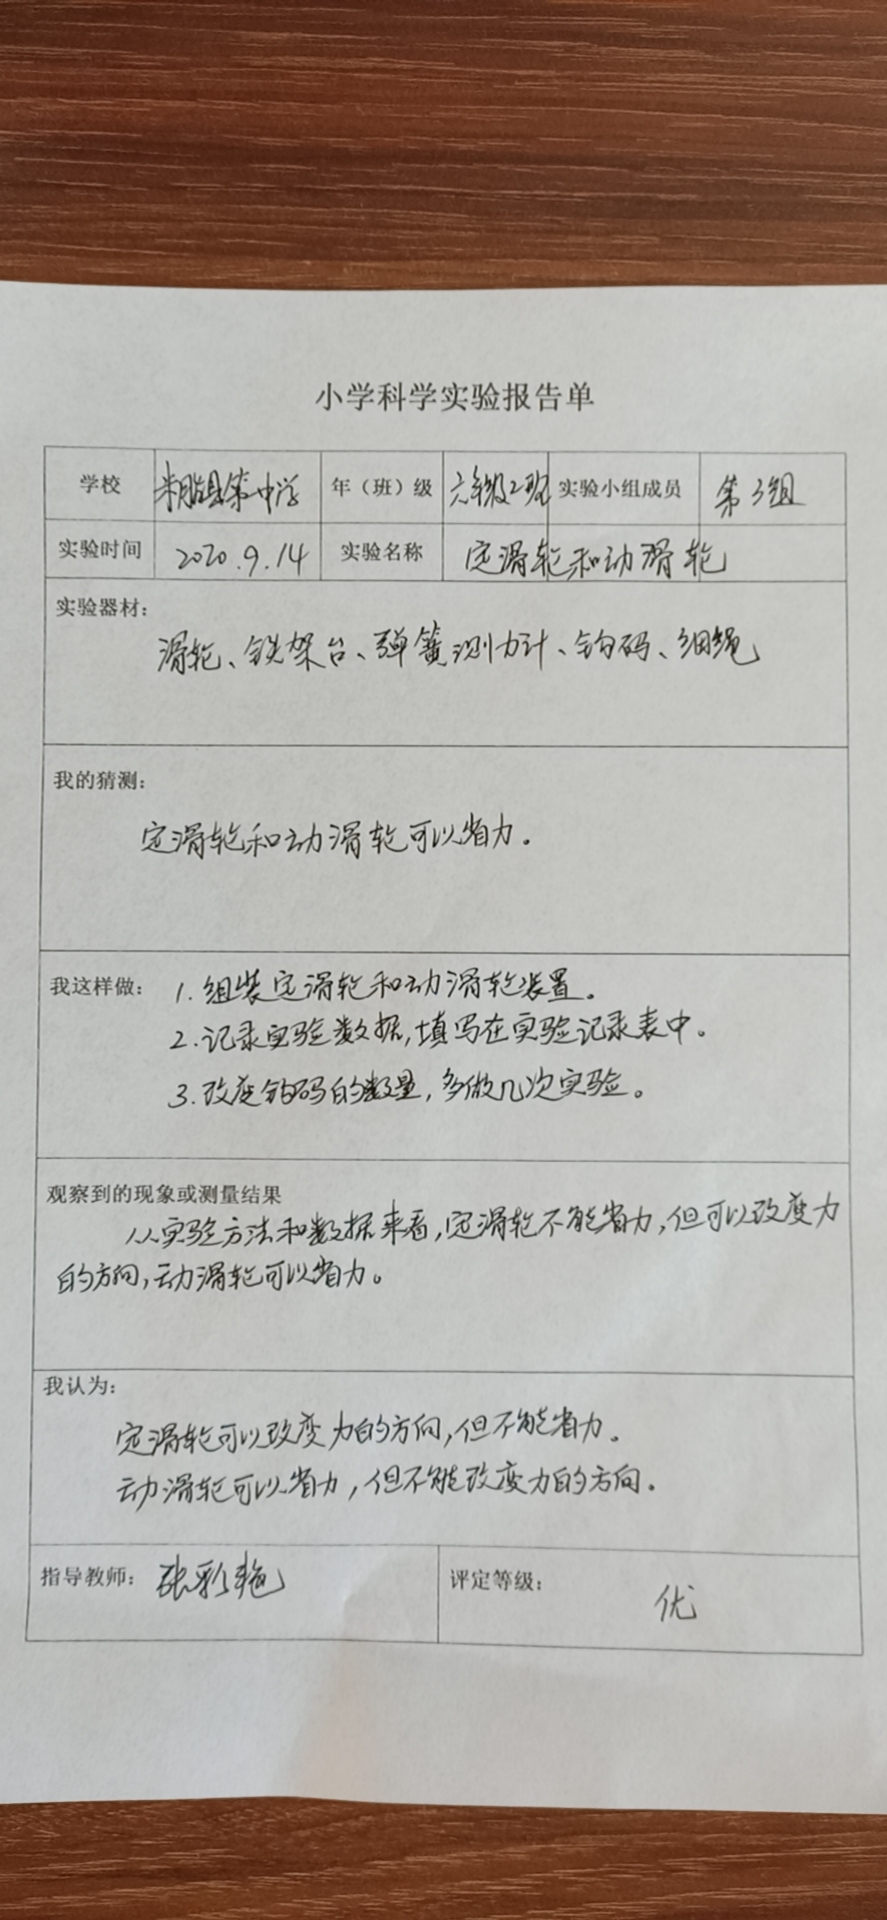 小学科学实验报告单
学校 米脂县第一中学 年（班）级 六年级2班 实验小组成员 第3组
实验时间 2020.9.14 实验名称 定滑轮和动滑轮
实验器材：
滑轮、铁架台、弹簧测力计、钩码、细绳
我的猜测：
定滑轮和动滑轮可以省力。
我这样做： 1.组装定滑轮和动滑轮装置。
2.记录实验数据，填写在实验记录表中。
3.改变钩码的数量，多做几次实验。
观察到的现象或测量结果
从实验方法和数据来看，定滑轮不能省力，但可以改变力
的方向，动滑轮可以省力。
我认为：
定滑轮可以改变力的方向，但不能省力。
动滑轮可以省力，但不能改变力的方向。
指导教师： 张彩艳 评定等级：
优